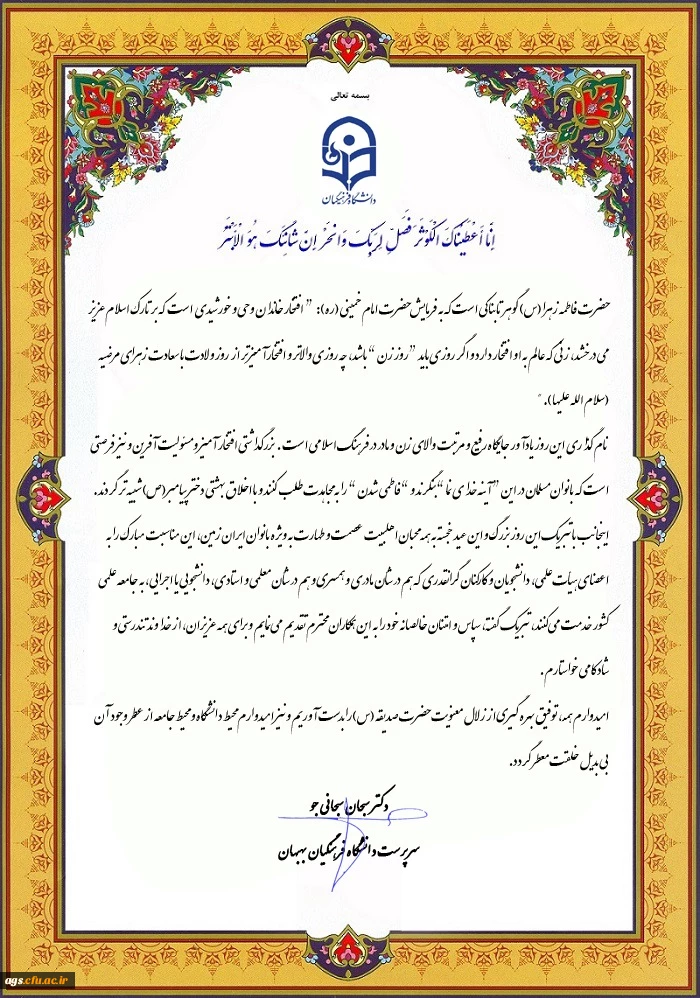 بسمه تعالی
دانشگاه فرهنگیان
اِنّا أَعْطَیْناکَ الْکَوْثَرَ فَصَلِّ لِرَبِّکَ وَانْحَرْ اِنَّ شانِئَکَ هُوَ الْأَبْتَرُ
حضرت فاطمه زهرا (س) گوهر تابناکی است که به فرمایش حضرت امام خمینی (ره): " افتخار خاندان وحی و خورشیدی است که بر تارک اسلام عزیز
می درخشد، زنی که عالم به او افتخار دارد و اگر روزی باید "روز زن " باشد، چه روزی والاتر و افتخارآمیزتر از روز ولادت با سعادت زهرای مرضیه
(سلام الله علیها). "
نام گذاری این روز یادآور جایگاه رفیع و مرتبت والای زن و مادر در فرهنگ اسلامی است. بزرگداشتی افتخار آمیز و مسئولیت آفرین و نیز فرصتی
است که بانوان مسلمان در این "آینه خدای نما "بنگرند و "فاطمی شدن " را به مجاهدت طلب کنند و با اخلاق بهشتی دختر پیامبر(ص) شبیه تر گردند.
اینجانب با تبریک این روز بزرگ و این عید خجسته به همه محبان اهلبیت عصمت و طهارت به ویژه بانوان ایران زمین، این مناسبت مبارک را به
اعضای هیات علمی، دانشجویان و کارکنان گرانقدری که هم در شان مادری و همسری و هم در شان معلمی و استادی، دانشجویی یا اجرایی، به جامعه علمی
کشور خدمت می کنند، تبریک گفته، سپاس و امتنان خالصانه خود را به این همکاران محترم تقدیم می نمایم و برای همه عزیزان، از خداوند تندرستی و
شادکامی خواستارم.
امیدوارم همه، توفیق بهره گیری از زلال معنویت حضرت صدیقه (س) را بدست آوریم و نیز امیدوارم محیط دانشگاه و محیط جامعه از عطر وجود آن
بی بدیل خلقت معطر گردد.
دکتر سبحان سبحانی جو
سرپرست دانشگاه فرهنگیان بهبهان
ags.cfu.ac.ir